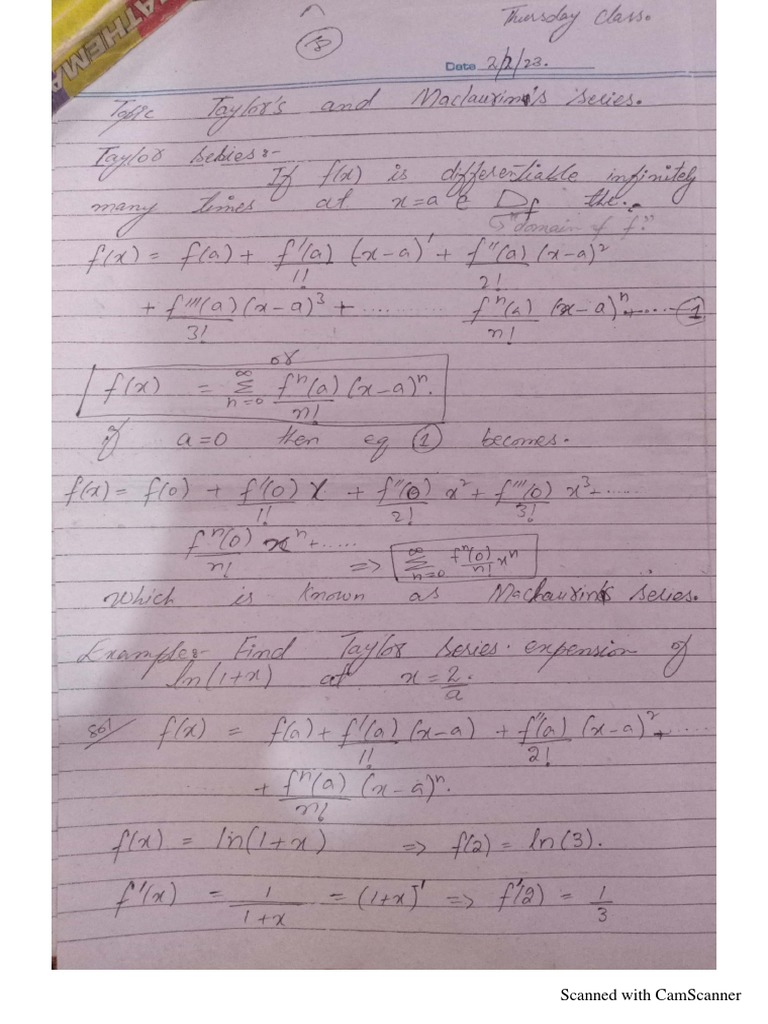 MATHEMA
Thursday Class.
18
Date 2/2/23.
Topic Taylor's and Maclaurin's series.
Taylor series:-
If f(x) is differentiable infinitely
many times at x=a ∈ Df the.
"domain of f."
f(x) = f(a) + f'(a)/1! (x-a)' + f''(a)/2! (x-a)²
+ f'''(a)/3! (x-a)³ + ......... fⁿ(a)/n! (x-a)ⁿ+.....-①
or
f(x) = ∞Σn=0 fⁿ(a)/n! (x-a)ⁿ.
if a=0 then eq ① becomes.
f(x) = f(0) + f'(0)/1! x + f''(0)/2! x² + f'''(0)/3! x³-.....
fⁿ(0)/n! xⁿ+..... => ∞Σn=0 fⁿ(0)/n! xⁿ
which is known as Maclaurin's series.
Example:- Find Taylor series. expension of
ln(1+x) at x = 2.
a
Sol/ f(x) = f(a) + f'(a)/1! (x-a) + f''(a)/2! (x-a)²+.....
+ fⁿ(a)/n! (x-a)ⁿ.
f(x) = ln(1+x) => f(2) = ln(3).
f'(x) = 1/1+x = (1+x)' => f'(2) = 1/3
Scanned with CamScanner